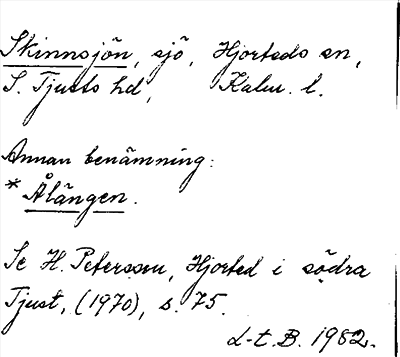 Skinnsjön, sjö, Hjorteds sn,
S. Tjusts hd, Kalm. l.
Annan benämning:
* Ålängen.
Se H. Petersson, Hjorted i södra
Tjust, (1970), s. 75.
L-t. B. 1982.